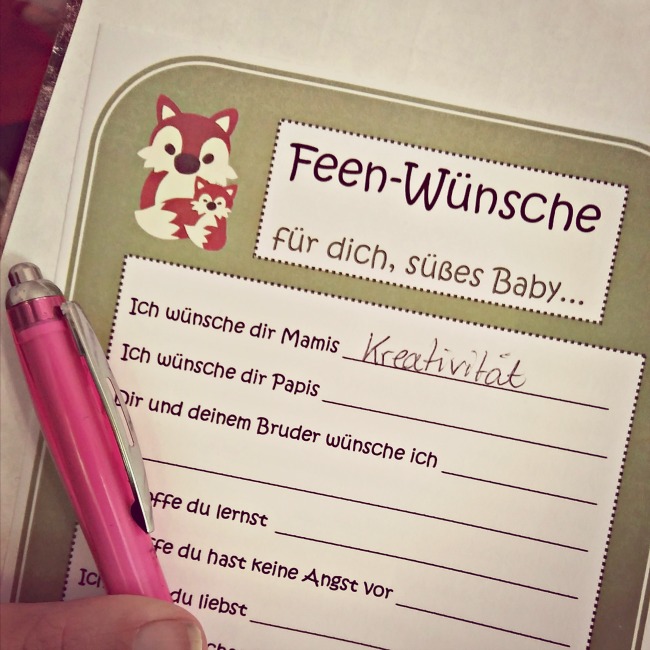 Feen-Wünsche
für dich, süßes Baby...
Ich wünsche dir Mamis Kreativität
Ich wünsche dir Papis
Dir und deinem Bruder wünsche ich
du lernst
du hast keine Angst vor
du liebst